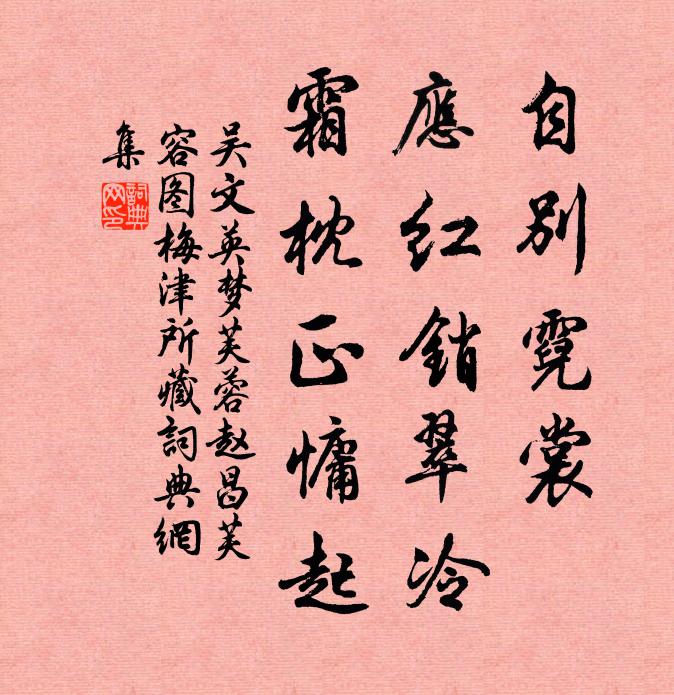 自别霓裳
應红銷翠冷
霜枕正慵起
吴文英梦芙蓉赵昌芙
容图梅津所藏詞典網
集
詞典
网印